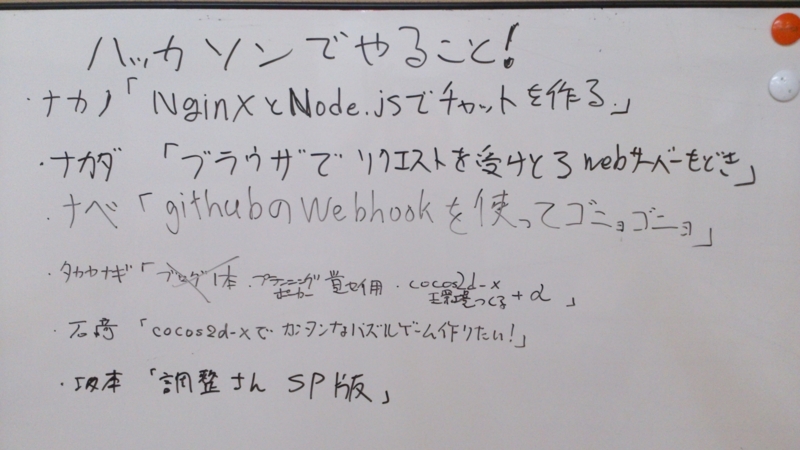 ハッカソンでやること!
・ナカノ「NginXとNode.jsでチャットを作る。」
・ナカダ 「ブラウザでリクエストを受けとるwebサーバーもどき」
・ナベ「githubのWebhookを使ってゴニョゴニョ」
・タカヤナギ「ブログ1本 ・プランニングポーカー 用 ・cocos2d-x 環境つくる+α」
・石崎「cocos2d-xでカンタンなパズルゲーム作りたい!」
・坂本「調整さん SP版」